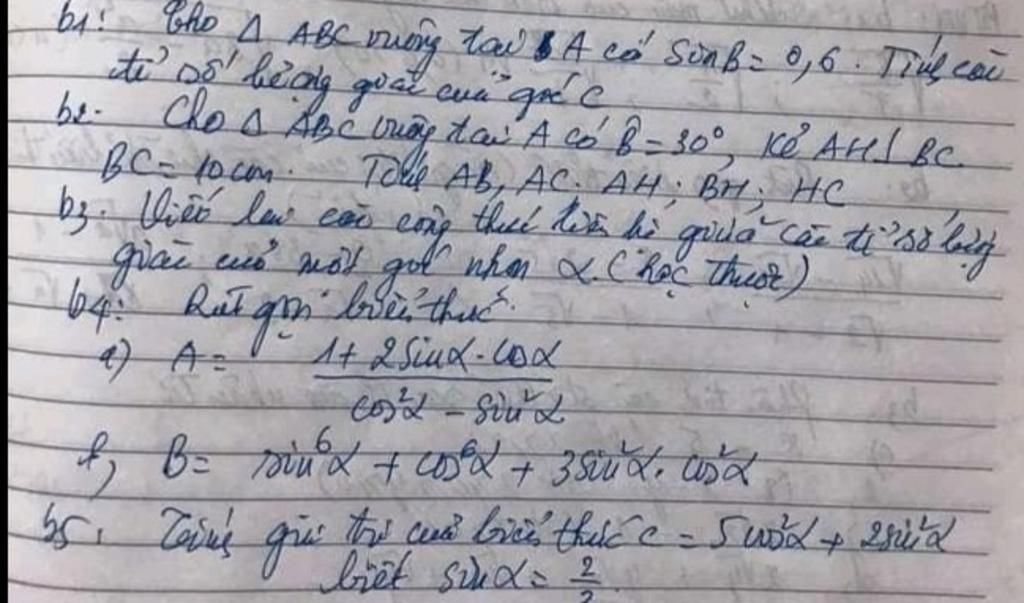 b1: Cho Δ ABC vuông tại A có SinB = 0,6. Tính các
tỉ số lượng giác của góc C
b2. Cho Δ ABC vuông tại A có B̂ = 30°, Kẻ AH ⊥ BC
BC = 10cm. Tính AB, AC. AH; BH; HC
b3. Viết lại các công thức liên hệ giữa các tỉ số lượng
giác của một góc nhọn α. (học thuộc)
b4: Rút gọn biểu thức.
a) A = (1 + 2Sinα.cosα) / (cos²α - Sin²α)
b, B = sin⁶α + cos⁶α + 3Sin²α.cos²α
b5: Tính giá trị của biểu thức C = 5cos²α + 2sin²α
biết sinα =